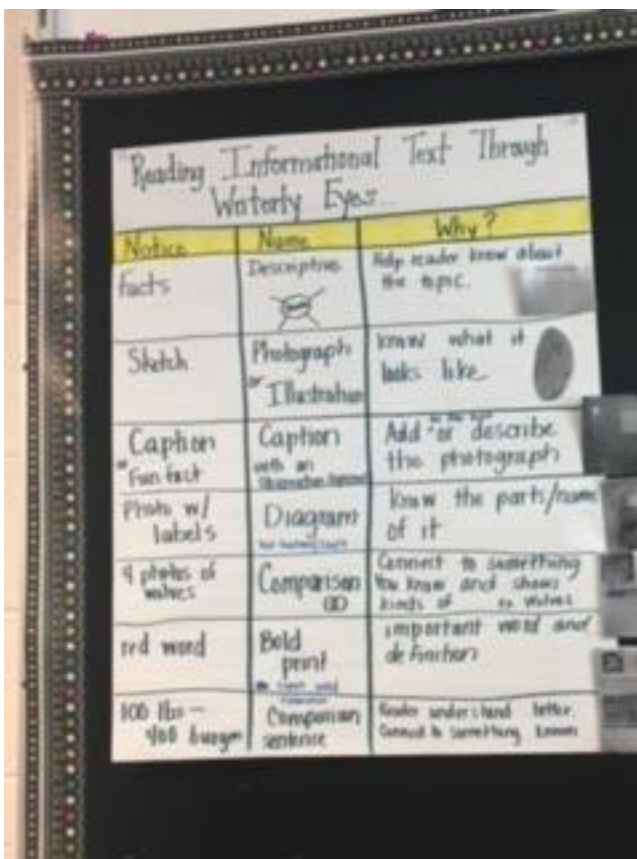 Reading Informational Text Through
Writerly Eyes...
Notice
Name
Why?
facts
Descriptive
Help reader know about
the topic.
Sketch
Photograph
or
Illustration
know what it
looks like
Caption
or Fun fact
Caption
with an
Add "or" describe
the photograph
Photo w/
labels
Diagram
know the parts/name
of it
4 photos of
wolves
Comparison
Connect to something
You know and shows
kinds of
wolves
red word
Bold
print
important word and
definition
100 lbs -
400
Comparison
sentence
Reader understand better
Connect to something known